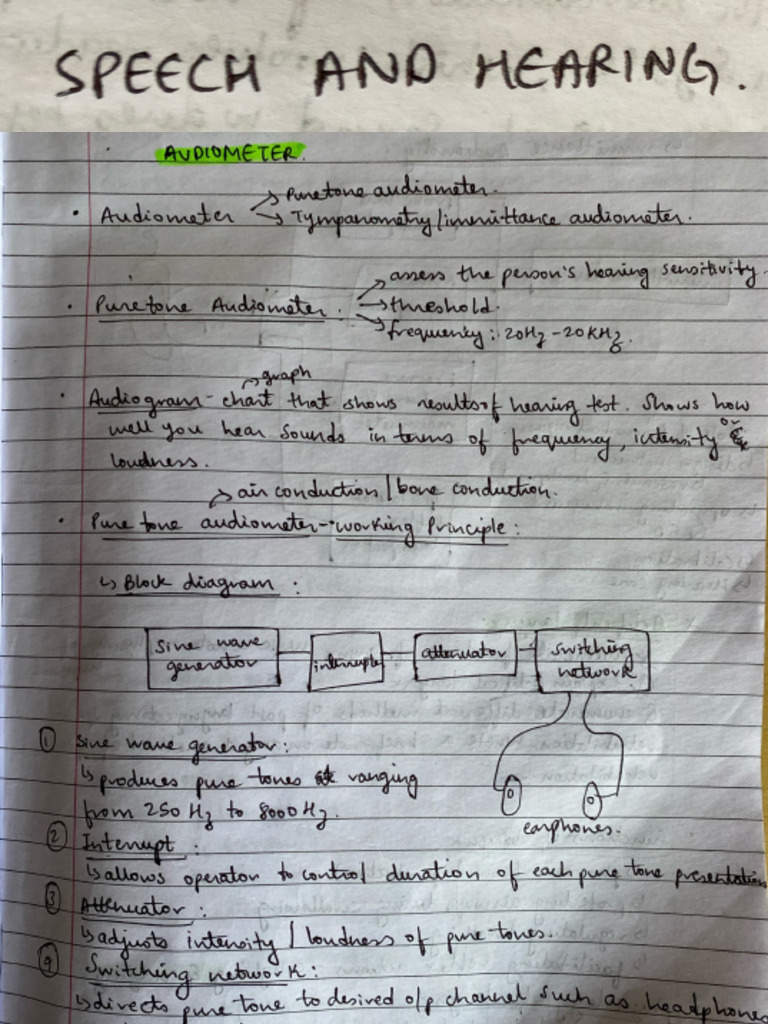 SPEECH AND HEARING.
AUDIOMETER.
→ Puretone audiometer.
• Audiometer → Tympanometry/immittance audiometer.
→ assess the person's hearing sensitivity
• Puretone Audiometer. → threshold.
→ frequency: 20Hz - 20KHz.
→ graph
• Audiogram - chart that shows results of hearing test. Shows how
well you hear sounds in terms of frequency, intensity or
loudness.
→ air conduction / bone conduction.
• Pure tone audiometer - working Principle:
↳ Block diagram :
sine wave generator
interrupter
attenuator
switching network
① Sine wave generator:
↳ produces pure tones ranging
from 250 Hz to 8000 Hz.
earphones.
② Interrupt :
↳ allows operator to control duration of each pure tone presentation
③ Attenuator :
↳ adjusts intensity / loudness of pure tones.
④ Switching network :
↳ directs pure tone to desired o/p channel such as headphones